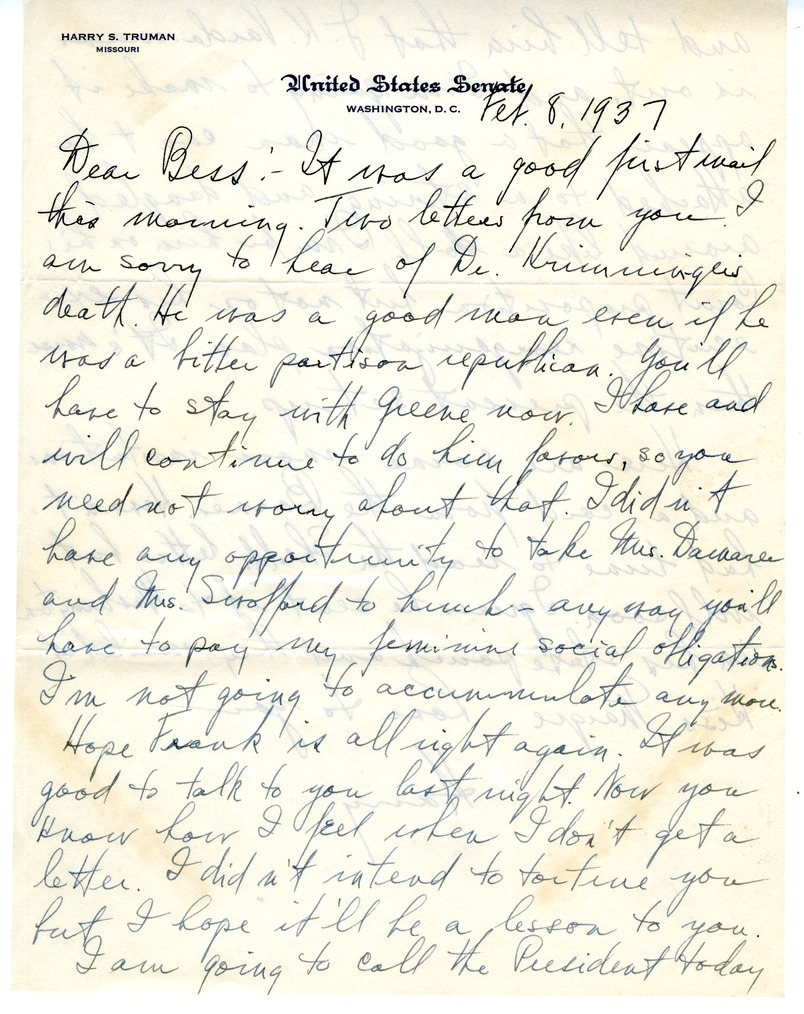 HARRY S. TRUMAN
MISSOURI
United States Senate
WASHINGTON, D. C.
Feb. 8, 1937
Dear Bess:- It was a good first mail
this morning. Two letters from you. I
am sorry to hear of Dr. Krimminger's
death. He was a good man even if he
was a bitter partison republican. You'll
have to stay with Greene now. I have and
will continue to do him favors, so you
need not worry about that. I did n't
have any opportunity to take Mrs.
and Mrs. Swofford to lunch - any way you'll
have to pay my feminine social obligations.
I'm not going to accummulate any more.
Hope Frank is all right again. It was
good to talk to you last night. Now you
know how I feel when I don't get a
letter. I did n't intend to torture you
but I hope it'll be a lesson to you.
I am going to call the President today